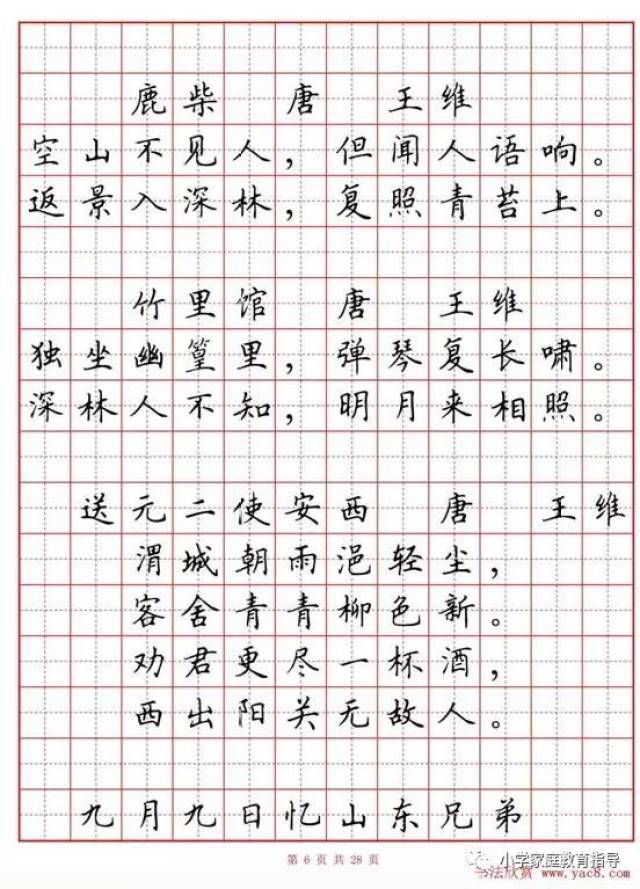 鹿柴 唐 王维
空山不见人，但闻人语响。
返景入深林，复照青苔上。
竹里馆 唐 王维
独坐幽篁里，弹琴复长啸。
深林人不知，明月来相照。
送元二使安西 唐 王维
渭城朝雨浥轻尘，
客舍青青柳色新。
劝君更尽一杯酒，
西出阳关无故人。
九月九日忆山东兄弟
第 6 页 共 28 页
小学家庭教育指导
书法欣赏 www.yac8.com